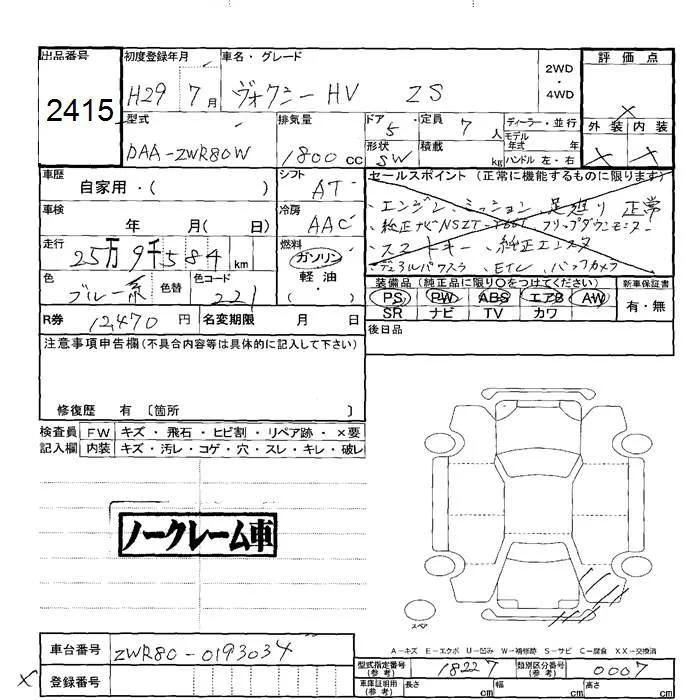 出品番号 初度登録年月 車名・グレード 2WD ・ 4WD 評価点
2415
H29 7月 ヴォクシー HV ZS ×
型式 排気量 ドア 5 定員 7人 ディーラー・並行 外装 内装
DAA-ZWR80W 1800cc 形状 SW 積載 kg モデル年式 年 × ×
ハンドル 左・右
車歴 自家用・( ) シフト AT セールスポイント (正常に機能するものに限ります)
・エンジン、ミッション、足廻り 正常
車検 年 月( 日) 冷房 AAC ・純正ナビNSZT- フリップダウンモニター
走行 25万9千584km 燃料 ガソリン 軽・油 ( )
・スマートキー ・純正エンスタ
・デュアルパワスラ ・ETC ・バックカメラ
色 ブルー系 色替 色コード 221 装備品(純正品に限り○をつけてください) 新車保証書
PS PW ABS エアB AW 有・無
R券 12,470円 名変期限 月 日 SR ナビ TV カワ
注意事項申告欄(不具合内容等は具体的に記入して下さい) 後日品
修復歴 有 〔箇所 〕
検査員 FW キズ・飛石・ヒビ割・リペア跡・×要
記入欄 内装 キズ・汚レ・コゲ・穴・スレ・キレ・破レ
ノークレーム車
スペア
A-キズ E-エクボ U-凹み W-補修跡 S-サビ C-腐食 XX-交換済
車台番号 ZWR80-0193034
型式指定番号(参考) 18227 類別区分番号(参考) 0007
× 登録番号
車庫証明用(参考) 長さ cm 幅 cm 高さ cm